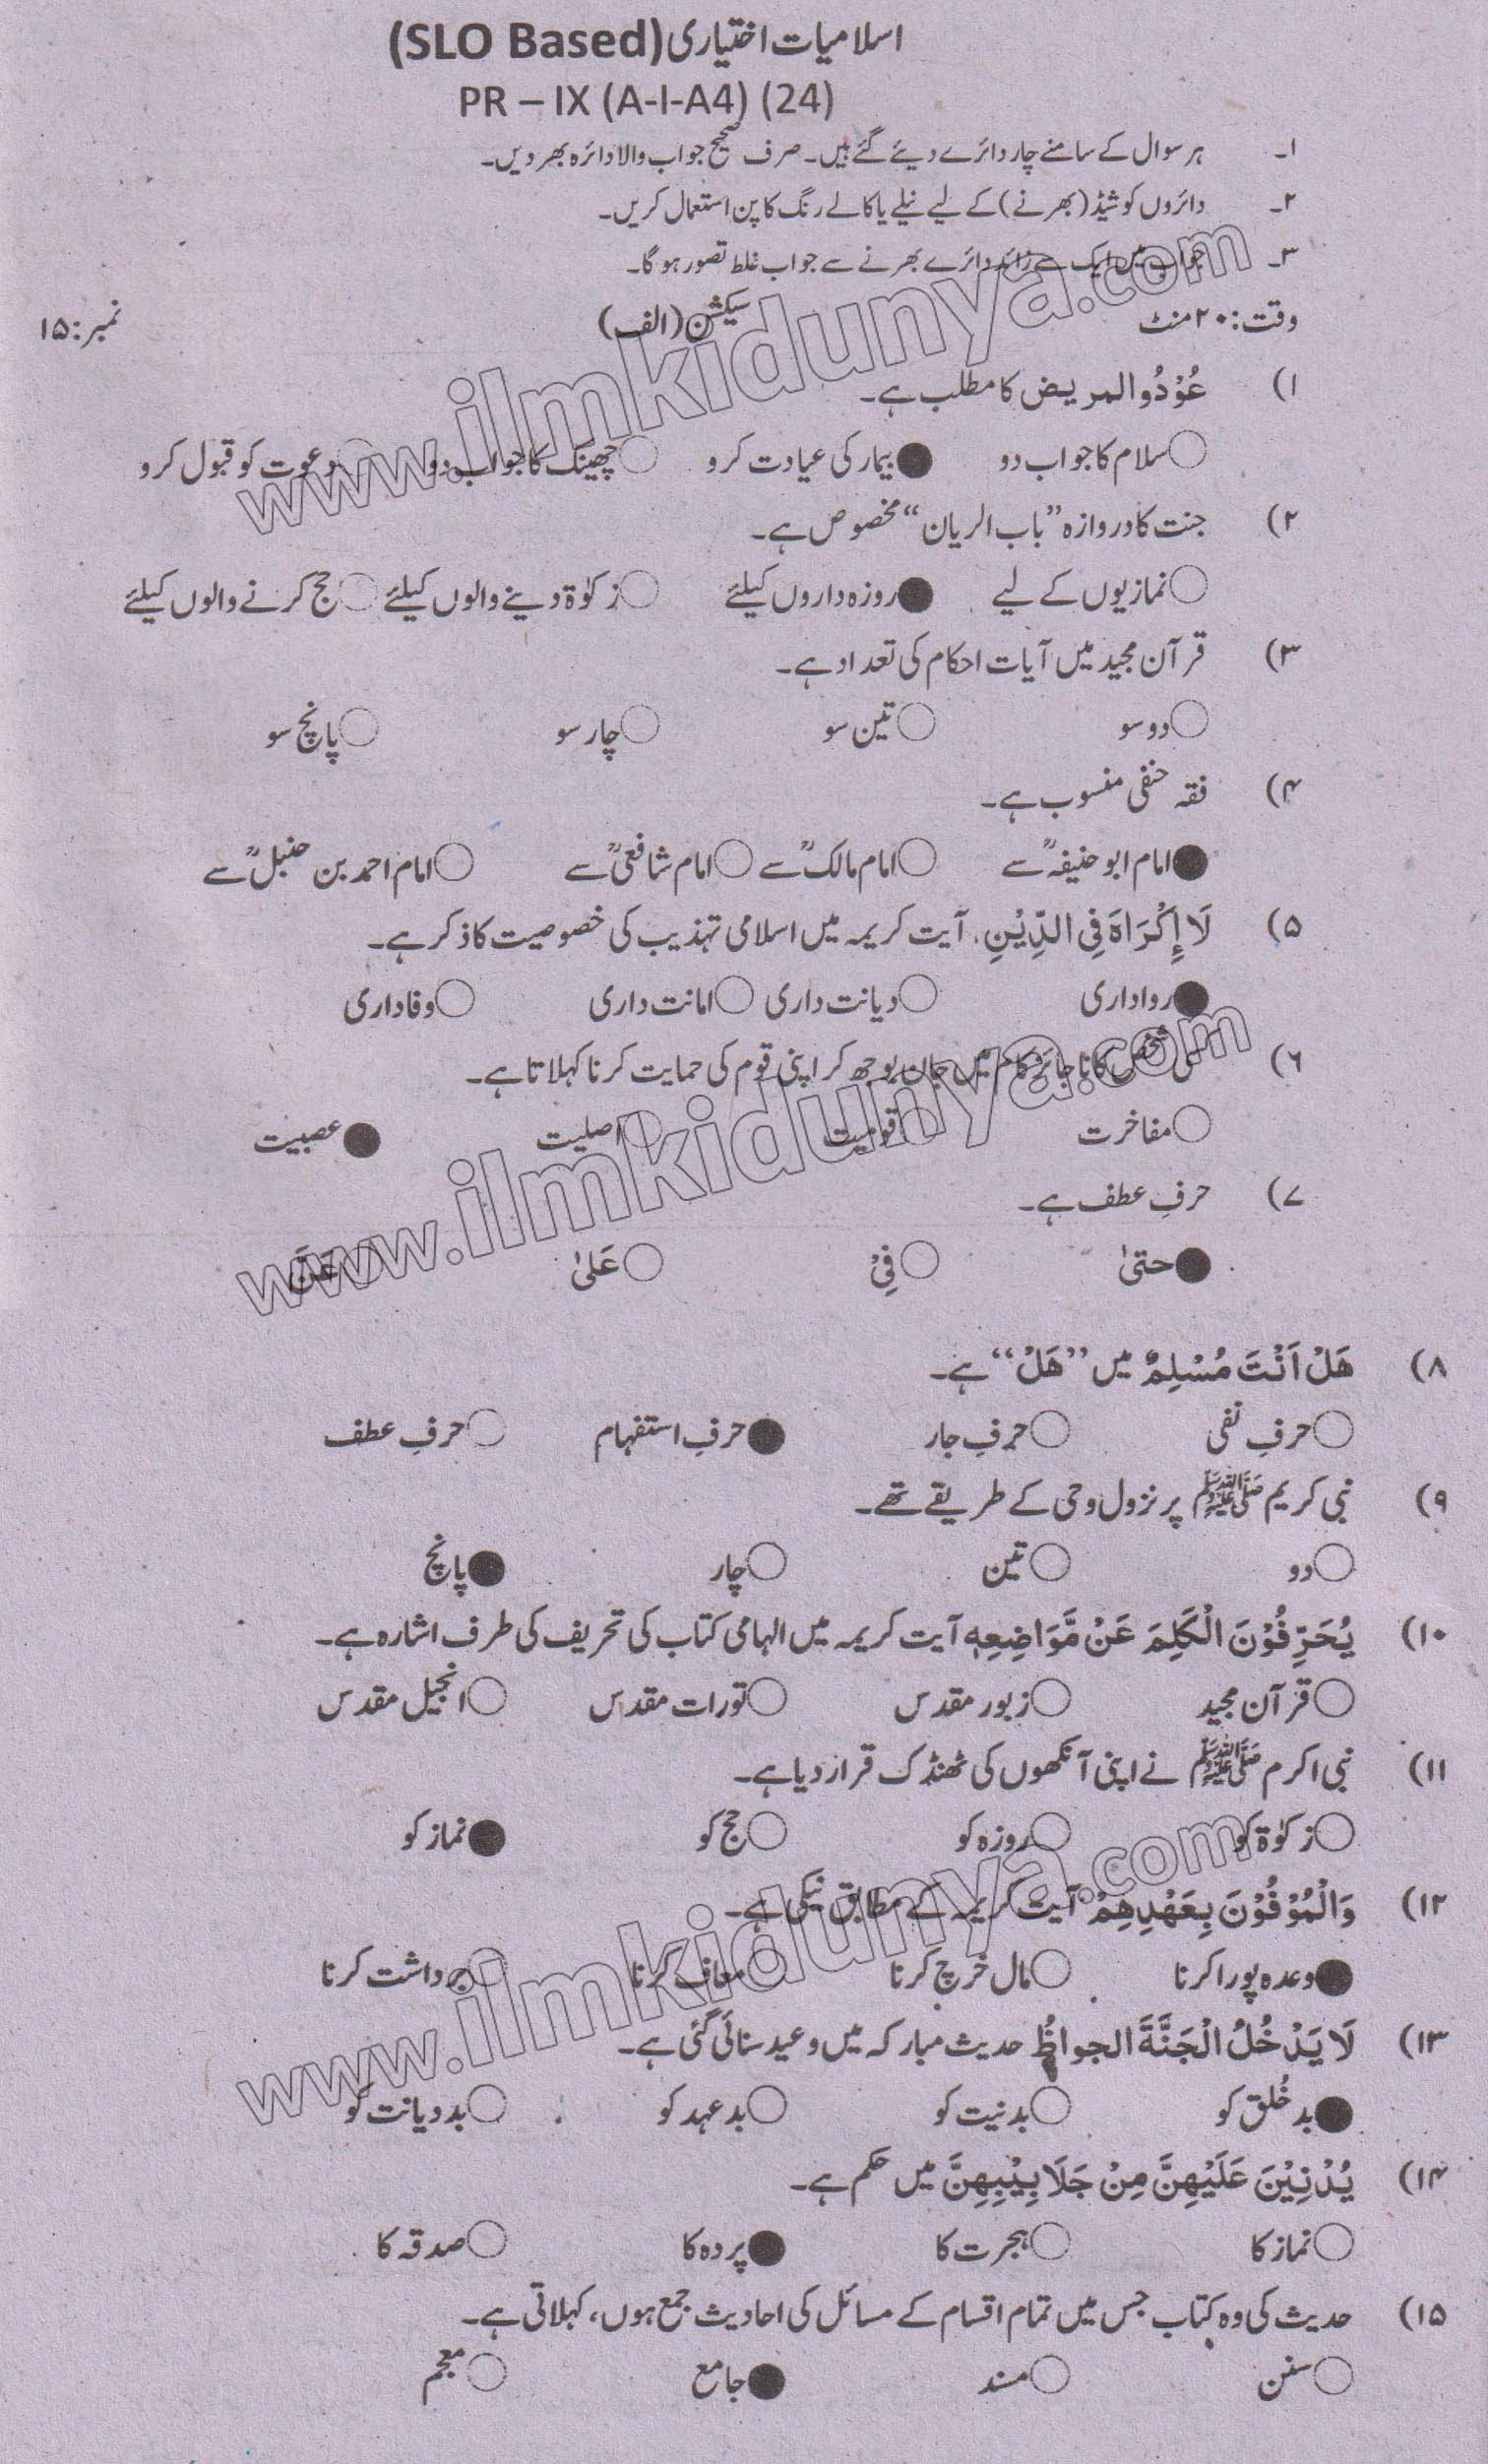 اسلامیات اختیاری (SLO Based)
PR – IX (A-I-A4) (24)
۱۔ ہر سوال کے سامنے چار دائرے دیئے گئے ہیں۔ صرف صحیح جواب والا دائرہ بھر دیں۔
۲۔ دائروں کو شیڈ (بھرنے) کے لیے نیلے یا کالے رنگ کا پن استعمال کریں۔
۳۔ جواب میں ایک سے زائد دائرے بھرنے سے جواب غلط تصور ہو گا۔
وقت: ۲۰ منٹ سیکشن (الف) نمبر: ۱۵
۱) عُوْدُو المریض کا مطلب ہے۔
سلام کا جواب دو بیمار کی عیادت کرو چھینک کا جواب دو دعوت کو قبول کرو
۲) جنت کا دروازہ ”باب الریان“ مخصوص ہے۔
نمازیوں کے لیے روزہ داروں کیلئے زکوٰۃ دینے والوں کیلئے حج کرنے والوں کیلئے
۳) قرآن مجید میں آیات احکام کی تعداد ہے۔
دو سو تین سو چار سو پانچ سو
۴) فقہ حنفی منسوب ہے۔
امام ابو حنیفہؒ سے امام مالکؒ سے امام شافعیؒ سے امام احمد بن حنبلؒ سے
۵) لَا إِكْرَاهَ فِی الدِّیْنِ، آیت کریمہ میں اسلامی تہذیب کی خصوصیت کا ذکر ہے۔
رواداری دیانت داری امانت داری وفاداری
۶) کسی شخص کا ناجائز کام میں جان بوجھ کر اپنی قوم کی حمایت کرنا کہلاتا ہے۔
مفاخرت قومیت اصلیت عصبیت
۷) حرفِ عطف ہے۔
حتیٰ فِیْ عَلیٰ عَنَّ
۸) هَلْ اَنْتَ مُسْلِمٌ میں ”هَلْ“ ہے۔
حرفِ نفی حرفِ جار حرفِ استفہام حرفِ عطف
۹) نبی کریم ﷺ پر نزول وحی کے طریقے تھے۔
دو تین چار پانچ
۱۰) یُحَرِّفُوْنَ الْكَلِمَ عَنْ مَّوَاضِعِهٖ آیت کریمہ میں الہامی کتاب کی تحریف کی طرف اشارہ ہے۔
قرآن مجید زبور مقدس تورات مقدس انجیل مقدس
۱۱) نبی اکرم ﷺ نے اپنی آنکھوں کی ٹھنڈک قرار دیا ہے۔
زکوٰۃ کو روزہ کو حج کو نماز کو
۱۲) وَالْمُوْفُوْنَ بِعَهْدِهِمْ آیت کریمہ کے مطابق نیکی ہے۔
وعدہ پورا کرنا مال خرچ کرنا معاف کرنا برداشت کرنا
۱۳) لَا یَدْخُلُ الْجَنَّةَ الجواظُ حدیث مبارکہ میں وعید سنائی گئی ہے۔
بد خُلق کو بد نیت کو بد عہد کو بد دیانت کو
۱۴) یُدْنِیْنَ عَلَیْهِنَّ مِنْ جَلَابِیْبِهِنَّ میں حکم ہے۔
نماز کا ہجرت کا پردہ کا صدقہ کا
۱۵) حدیث کی وہ کتاب جس میں تمام اقسام کے مسائل کی احادیث جمع ہوں، کہلاتی ہے۔
سنن مسند جامع معجم
www.ilmkidunya.com
www.ilmkidunya.com
www.ilmkidunya.com